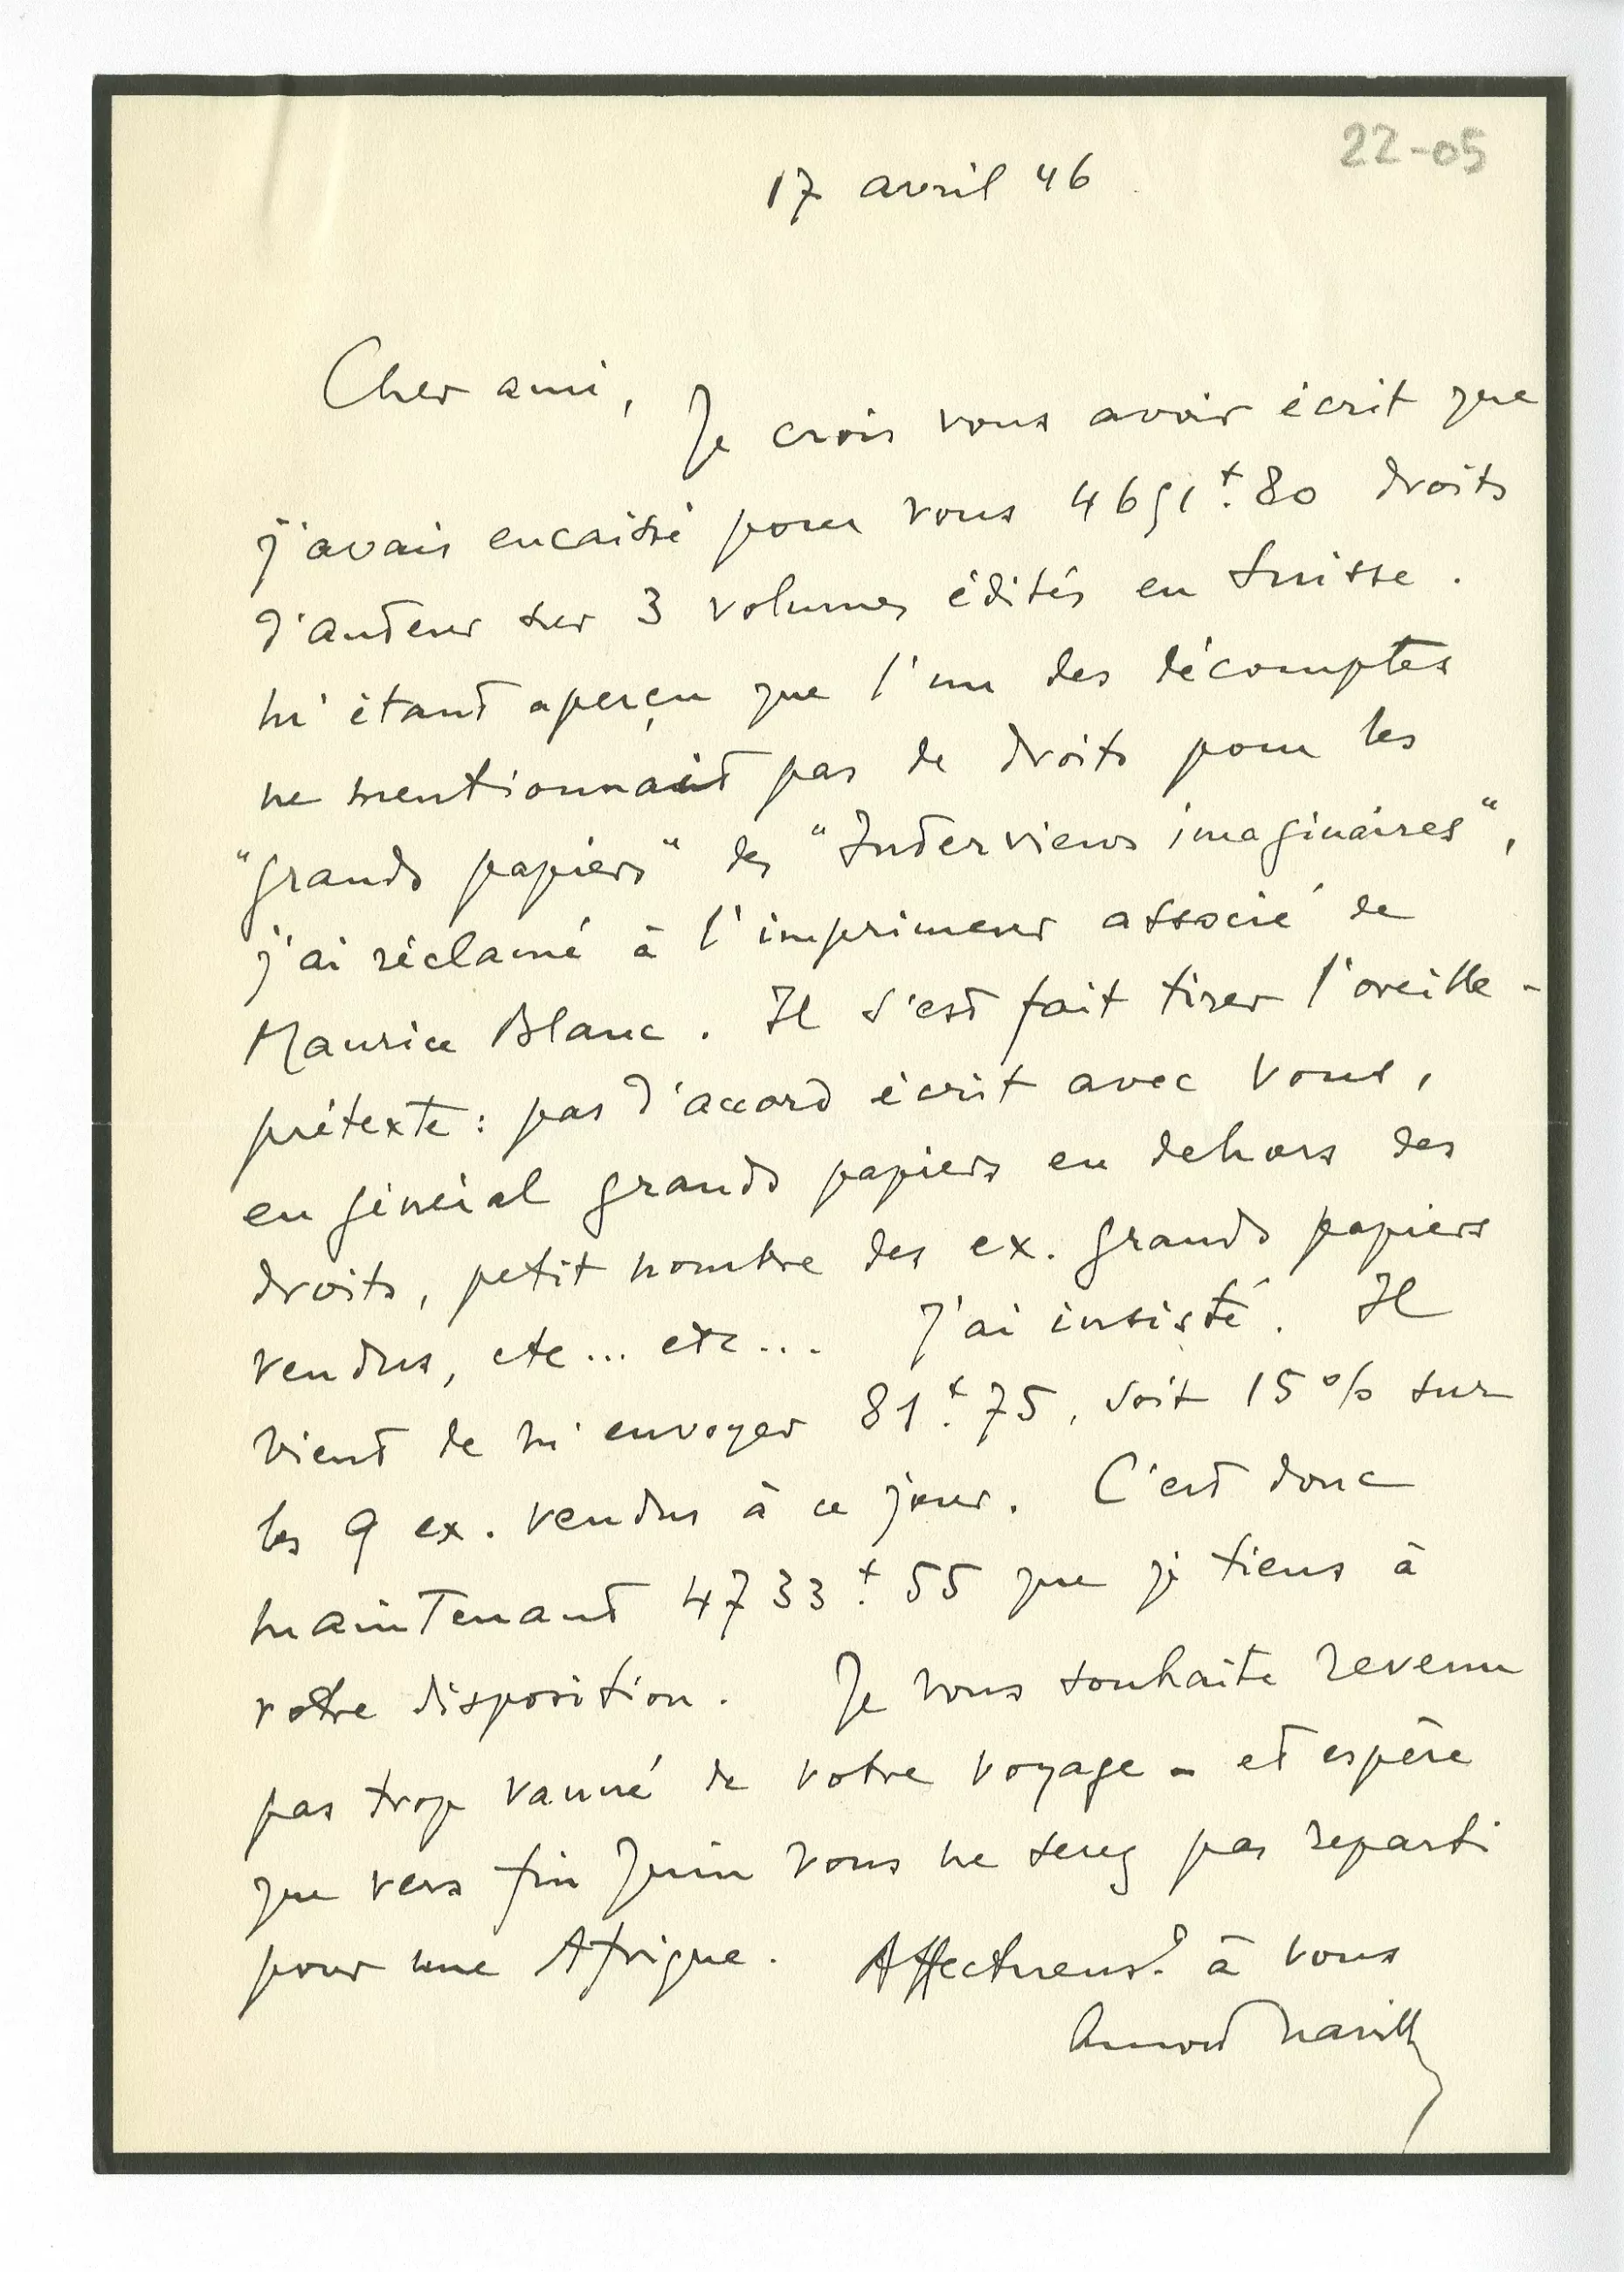 22-05
17 avril 46
Cher ami, Je crois vous avoir écrit que
j'avais encaissé pour vous 4651 f. 80 droits
d'auteur sur 3 volumes édités en Suisse.
M'étant aperçu que l'un des décomptes
ne mentionnait pas de droits pour les
"grands papiers" des "Interviews imaginaires",
j'ai réclamé à l'imprimeur associé de
Maurice Blanc. Il s'est fait tirer l'oreille -
prétexte : pas d'accord écrit avec vous,
en général grands papiers en dehors des
droits, petit nombre des ex. grands papiers
vendus, etc... etc... J'ai insisté. Il
vient de m'envoyer 81 f. 75, soit 15 % sur
les 9 ex. vendus à ce jour. C'est donc
maintenant 4733 f. 55 que je tiens à
votre disposition. Je vous souhaite revenu
pas trop vanné de votre voyage - et espère
que vers fin Juin vous ne serez pas reparti
pour une Afrique. Affectueust. à vous
Arnold Naville